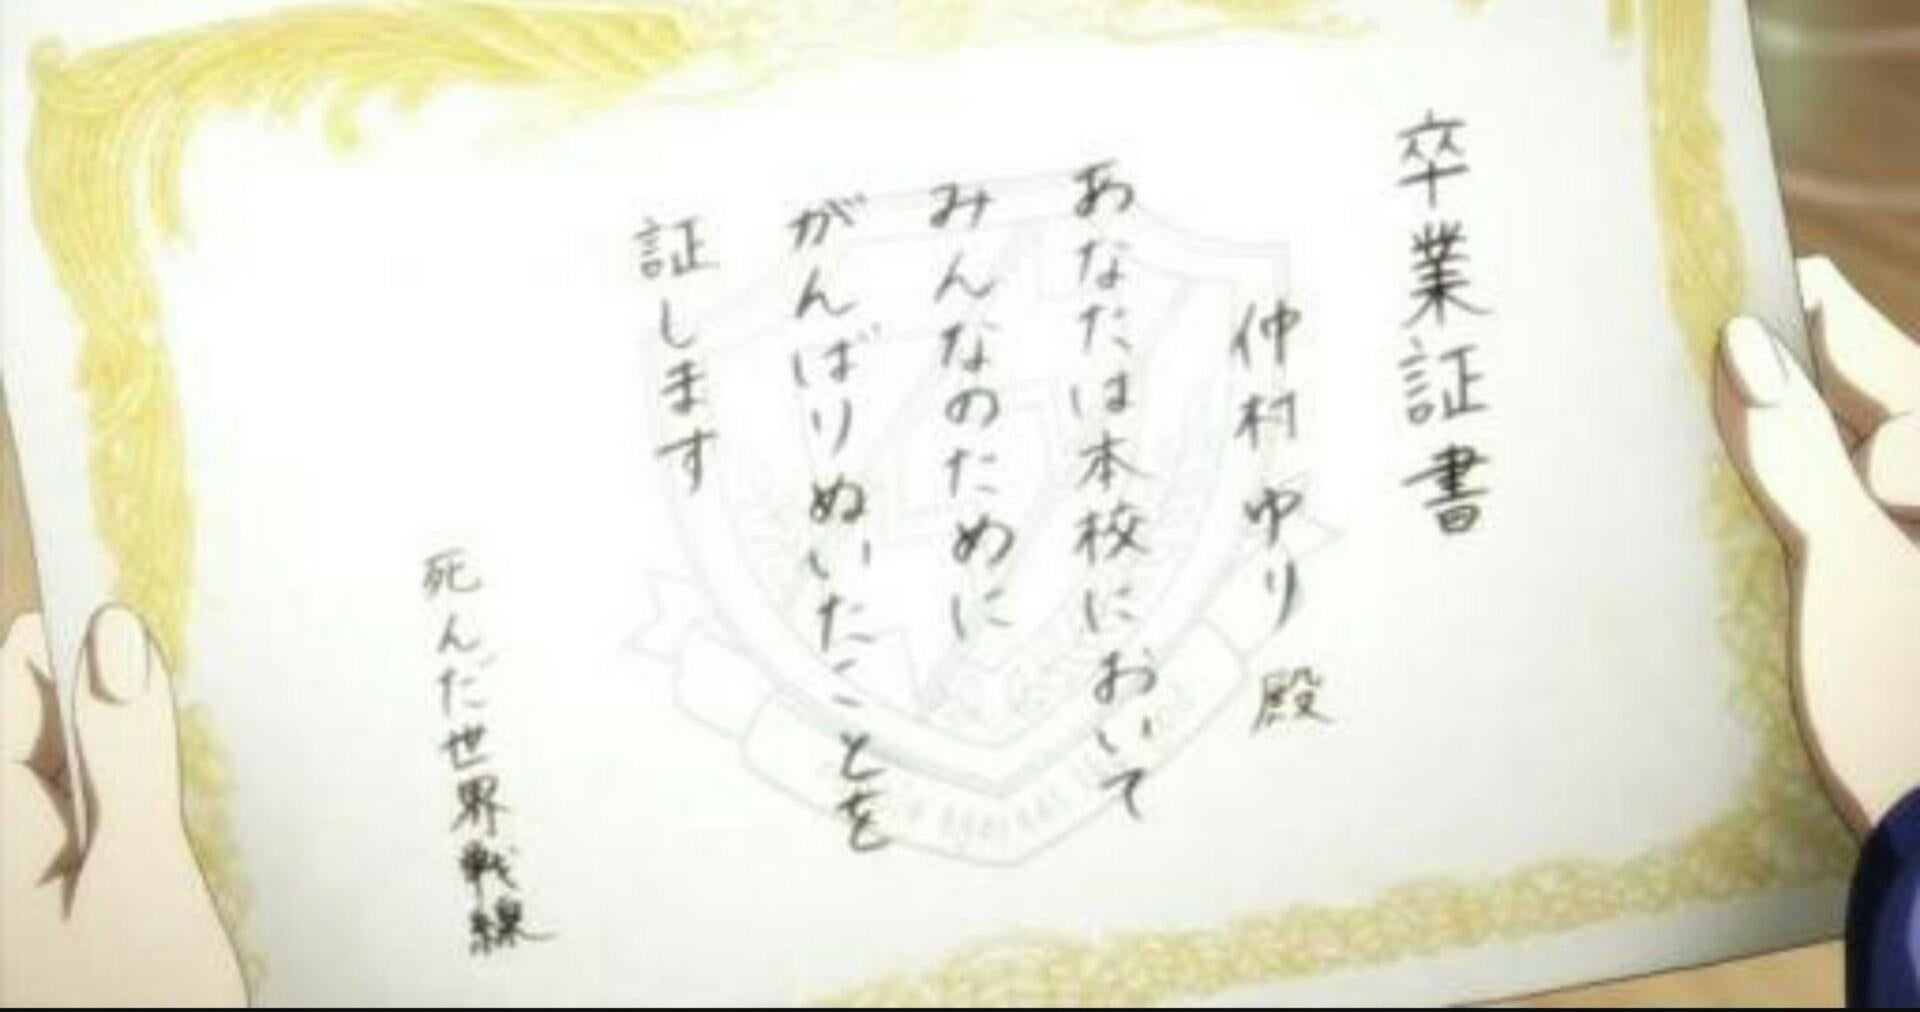 卒業証書
仲村ゆり 殿
あなたは本校において
みんなのために
がんばりぬいたことを
証します
死んだ世界戦線